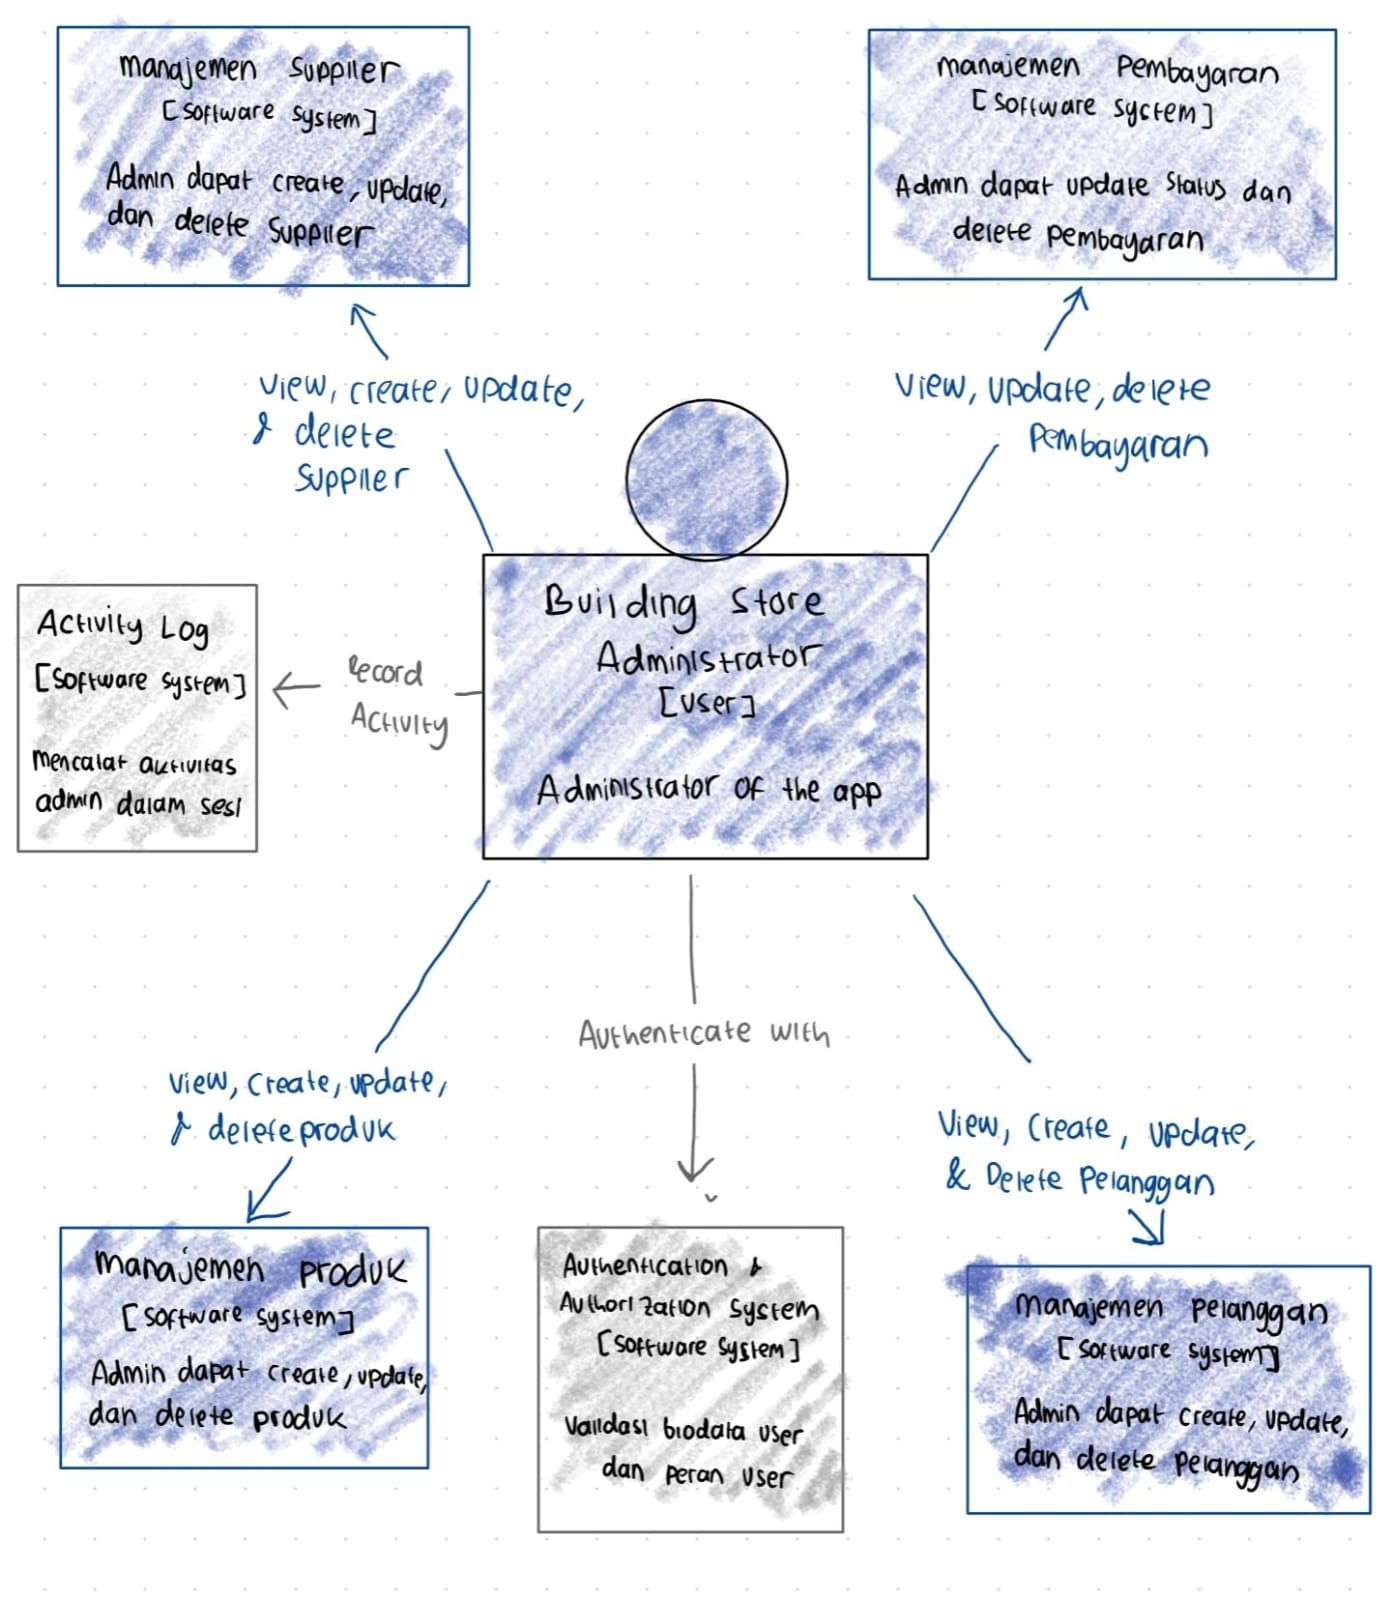 Manajemen Supplier
[Software System]
Admin dapat create, update,
dan delete Supplier
Manajemen Pembayaran
[Software System]
Admin dapat update Status dan
delete pembayaran
View, create, update,
& delete
Supplier
View, update, delete
Pembayaran
Building Store
Administrator
[User]
Administrator of the app
Activity Log
[Software System]
Mencatat aktivitas
admin dalam sesi
Record
Activity
Authenticate with
View, Create, update,
& delete produk
View, Create, update,
& Delete Pelanggan
Manajemen produk
[Software System]
Admin dapat create, update,
dan delete produk
Authentication &
Authorization System
[Software System]
Validasi biodata user
dan peran user
Manajemen pelanggan
[Software System]
Admin dapat create, update,
dan delete pelanggan